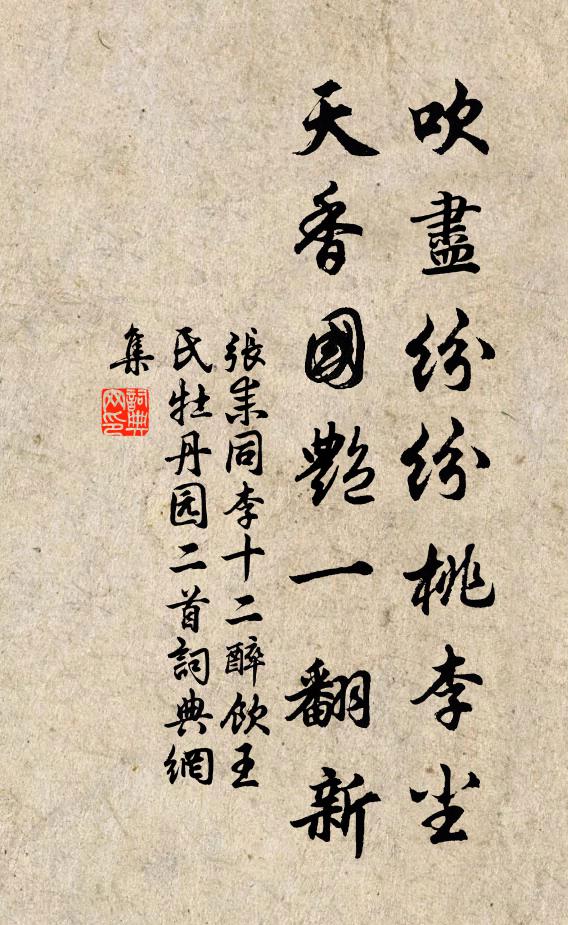 吹盡紛紛桃李尘
天香國艷一翻新
張耒同李十二醉飲王
氏牡丹园二首詞典網
集
詞典
网印